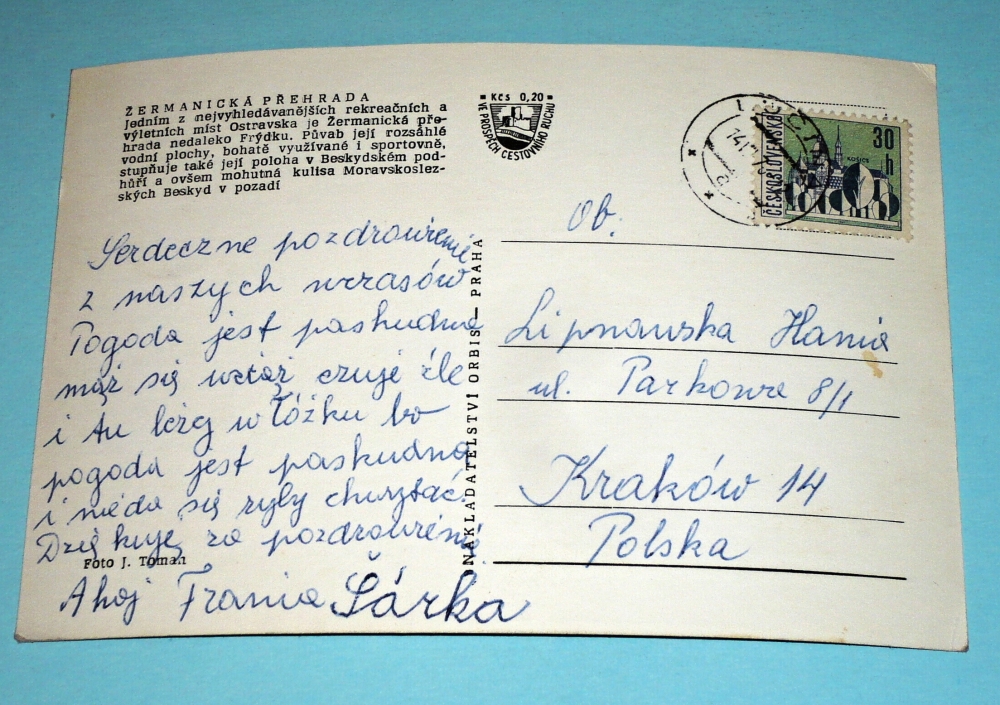 ŽERMANICKÁ PŘEHRADA
Jedním z nejvyhledávanějších rekreačních a
výletních míst Ostravska je Žermanická pře-
hrada nedaleko Frýdku. Půvab její rozsáhlé
vodní plochy, bohatě využívané i sportovně,
stupňuje také její poloha v Beskydském pod-
hůří a ovšem mohutná kulisa Moravskoslez-
ských Beskyd v pozadí
Kčs 0,20
VE PROSPĚCH CESTOVNÍHO RUCHU
ČESKOSLOVENSKO
30 h
KOŠICE
Serdeczne pozdrowienie
z naszych wczasów
Pogoda jest paskudna
mąż się wciąż czuje źle
i tu leżę w łóżku bo
pogoda jest paskudna
i nieda się ryby chwytać.
Dziękuję za pozdrowienie
Foto J. Toman
Ahoj Frania Šárka
NAKLADATELSTVÍ ORBIS — PRAHA
Ob.
Lipnawska Hania
ul. Parkowa 8/1
Kraków 14
Polska